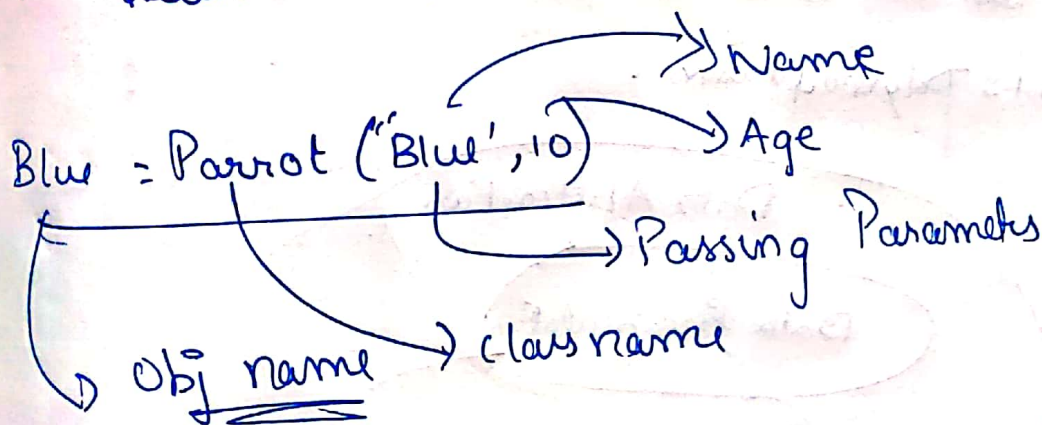 Name
Blue = Parrot ("Blue', 10)
Age
Passing Parameters
class name
Obj name